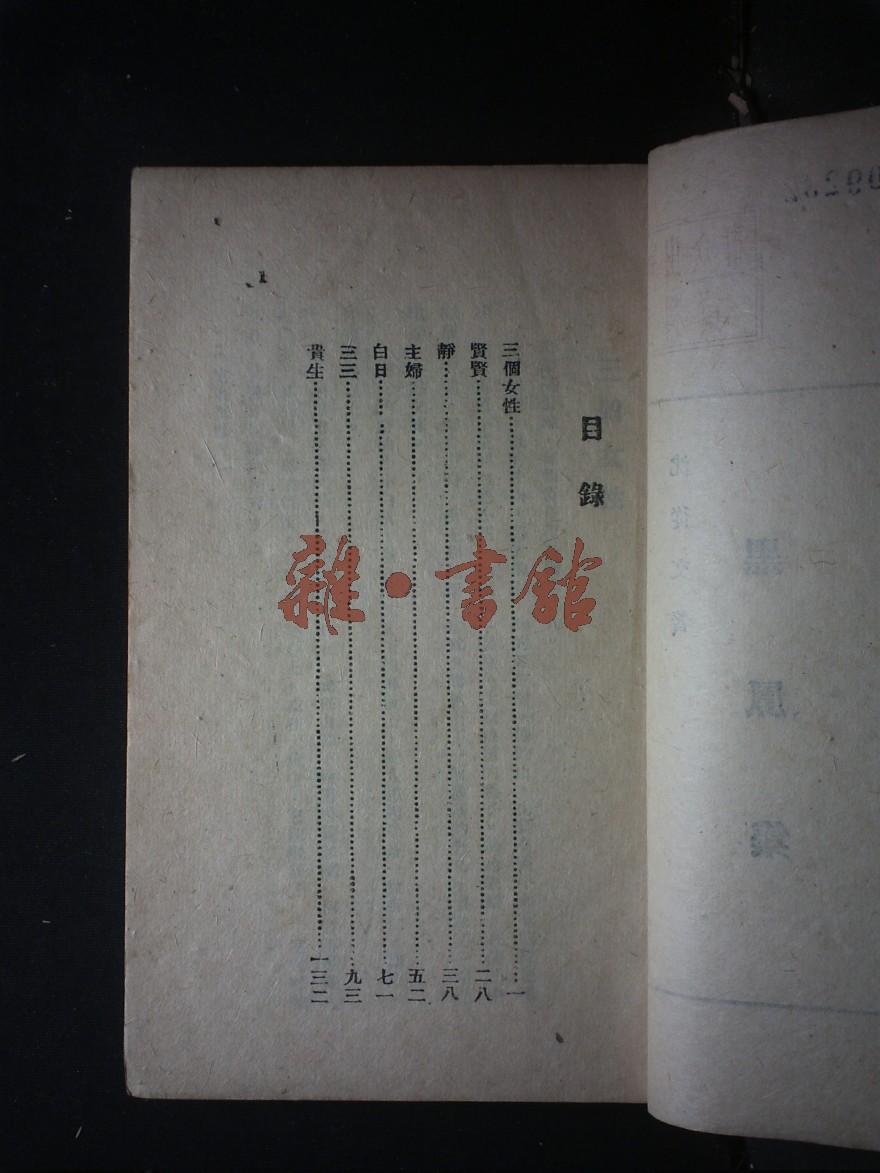 目錄
三個女性……一
賢賢……二八
靜……三八
主婦……五二
白日……七一
三三……九三
貴生……一三二
雜·書館